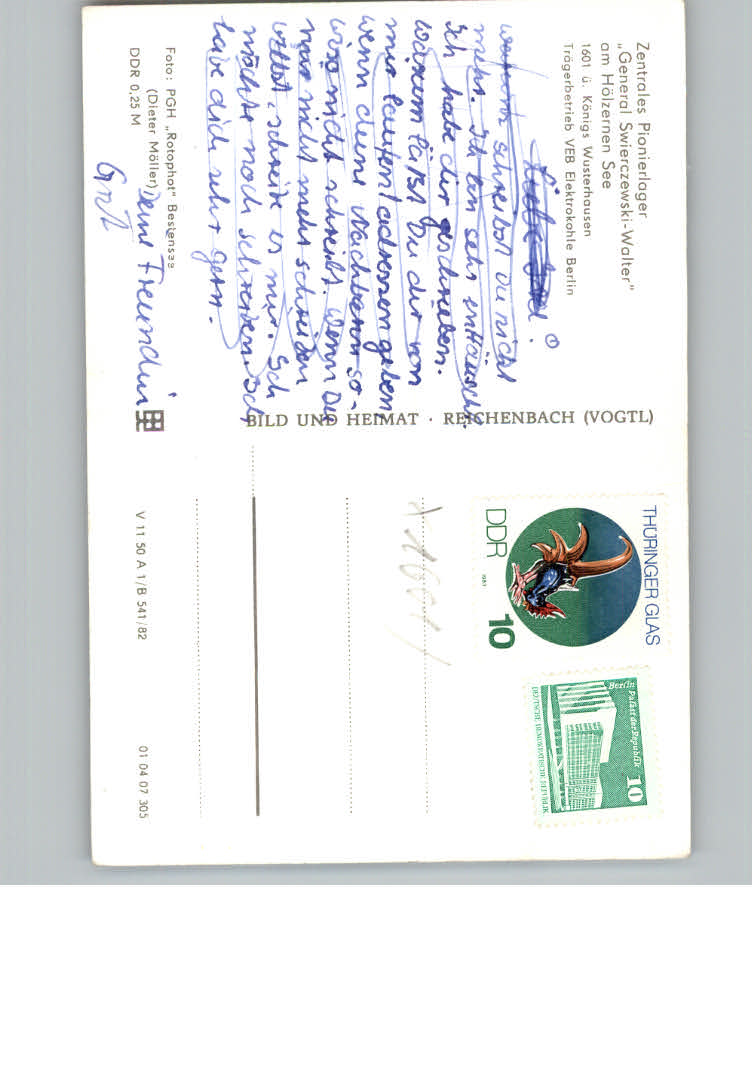 Zentrales Pionierlager
„General Swierczewski-Walter"
am Hölzernen See
1601 ü. Königs Wusterhausen
Trägerbetrieb VEB Elektrokohle Berlin
Liebe
warum schreibst Du nicht
mehr. Ich bin sehr enttäuscht.
Ich habe dir geschrieben.
Warum läßt Du dir von
mir laufend adressen geben
wenn deine Nachbarin so-
wiso nicht schreibt. Wenn Du
mir nicht mehr schreiben
willst, schreibe es mir. Ich
möchte noch schreiben. Ich
habe dich sehr gern.
Deine Freundin
Foto: PGH „Rotophot" Bestensee
(Dieter Möller)
DDR 0,25 M
BILD UND HEIMAT · REICHENBACH (VOGTL)
V 11 50 A 1/B 541/82
01 04 07 305
THÜRINGER GLAS
DDR
1983
10
Berlin Palast der Republik
10
DEUTSCHE DEMOKRATISCHE REPUBLIK